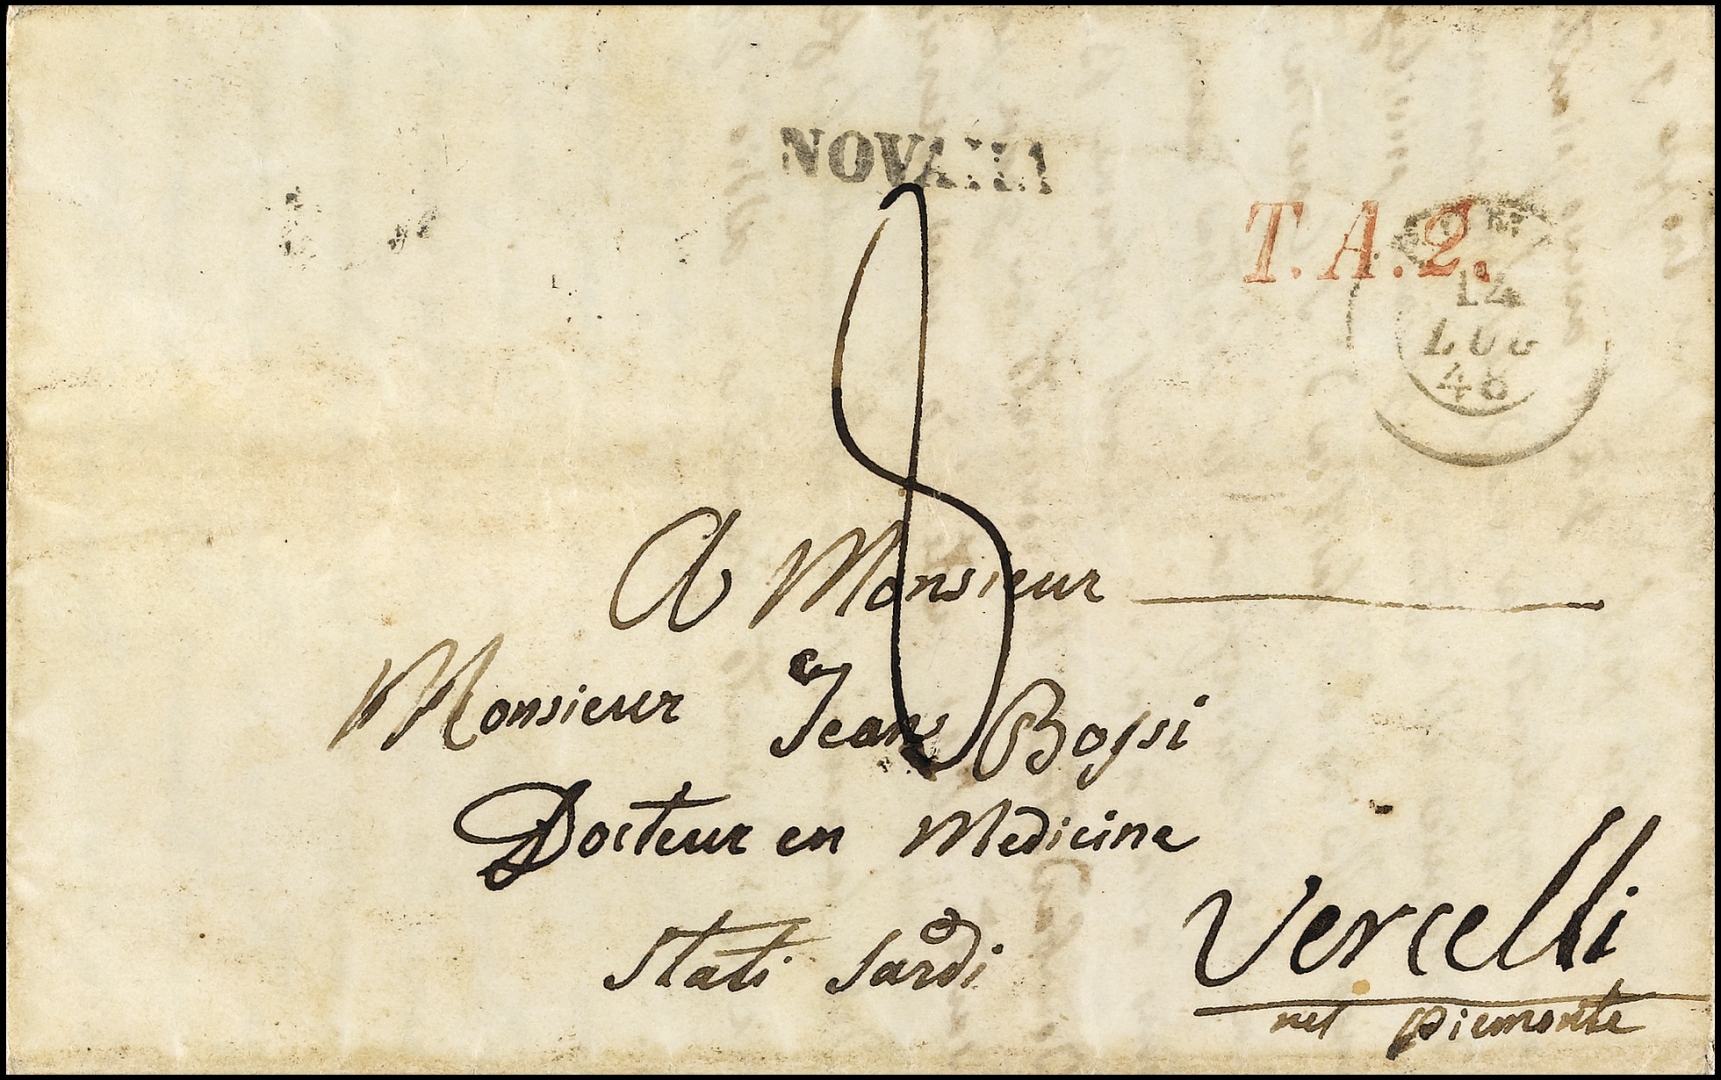 NOVARA
T.A.2.
12
LUG
48
8
A Monsieur
Monsieur Jean Bossi
Docteur en Medicine
Stati Sardi
Vercelli
nel Piemonte